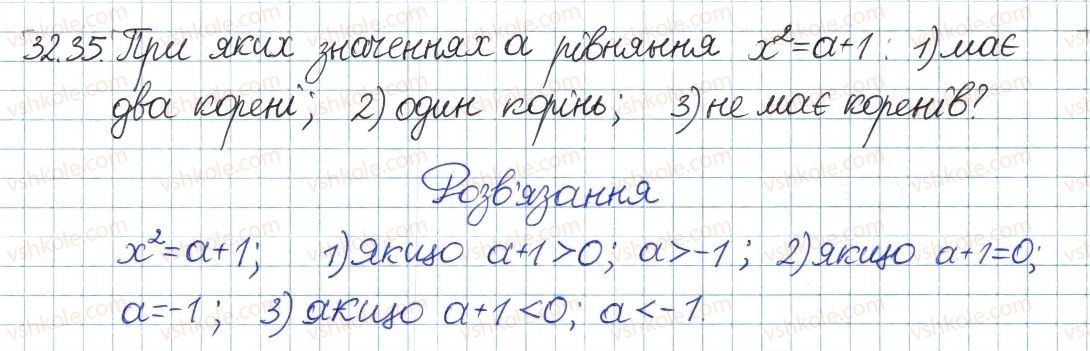 32.35. При яких значеннях a рівняння x²=a+1: 1) має
два корені; 2) один корінь; 3) не має коренів?
Розв'язання
x²=a+1; 1) якщо a+1>0; a>-1; 2) якщо a+1=0;
a=-1; 3) якщо a+1<0; a<-1.